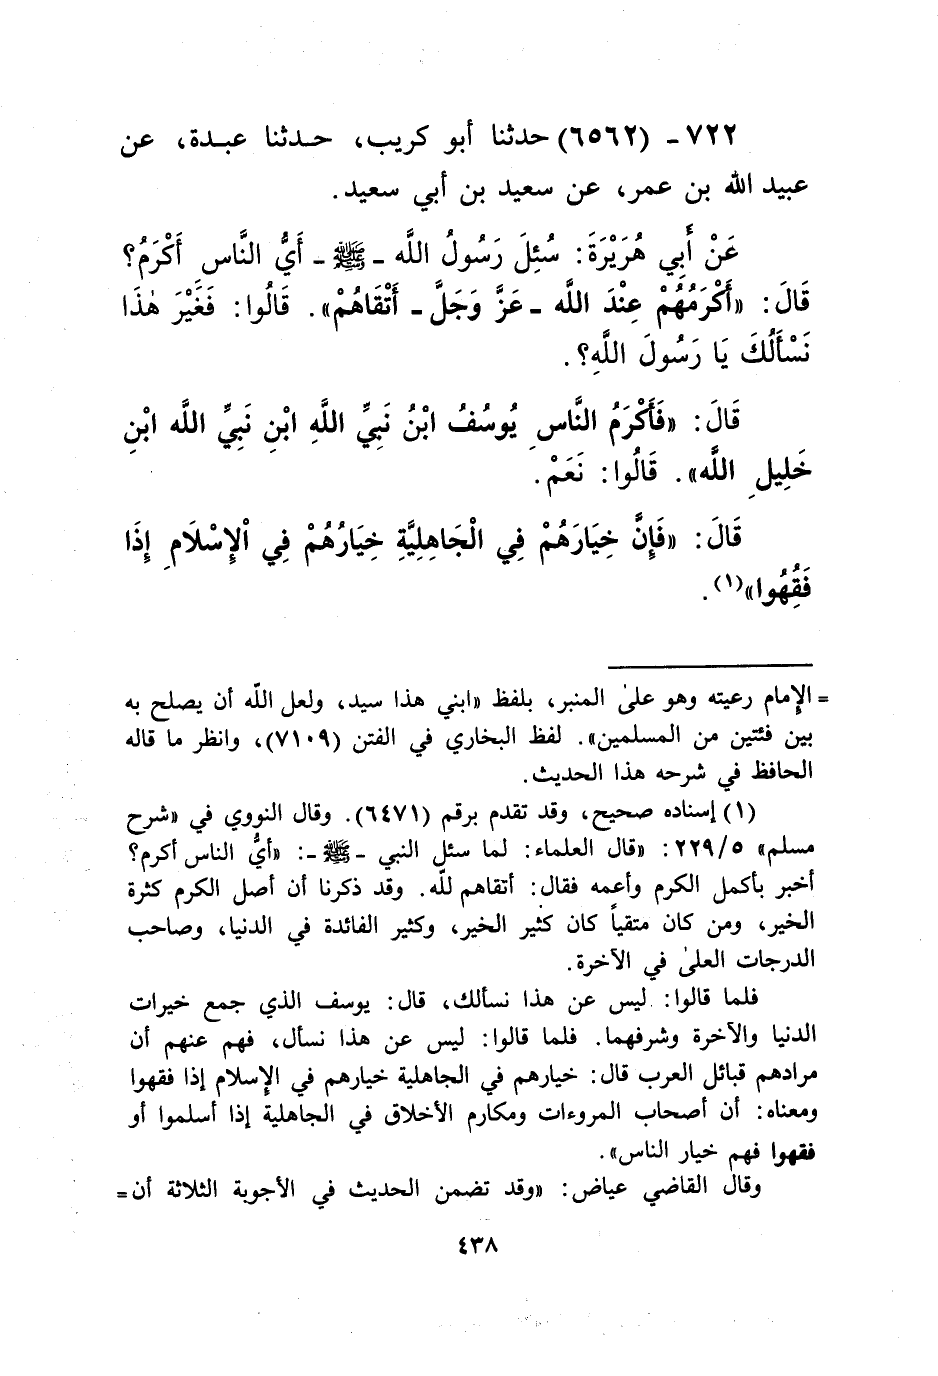 ٧٢٢ ـ (٦٥٦٢) حدثنا أبو كريب، حـدثنا عبـدة، عن
عبيد الله بن عمر، عن سعيد بن أبي سعيد.
عَنْ أَبِي هُرَيْرَةَ: سُئِلَ رَسُولُ اللَّه ـ ﷺ ـ أَيُّ النَّاسِ أَكْرَمُ؟
قَالَ: «أَكْرَمُهُمْ عِنْدَ اللَّه ـ عَزَّ وَجَلَّ ـ أَتْقَاهُمْ». قَالُوا: فَغَيْرَ هٰذَا
نَسْأَلُكَ يَا رَسُولَ اللَّهِ؟.
قَالَ: «فَأَكْرَمُ النَّاسِ يُوسُفُ ابْنُ نَبِيِّ اللَّهِ ابْنِ نَبِيِّ اللَّه ابْنِ
خَلِيلِ اللَّه». قَالُوا: نَعَمْ.
قَالَ: «فَإِنَّ خِيَارَهُمْ فِي الْجَاهِلِيَّةِ خِيَارُهُمْ فِي اْلإِسْلَامِ إِذَا
فَقُهُوا»(١).
= الإمام رعيته وهو علىٰ المنبر، بلفظ «ابني هذا سيد، ولعل اللّه أن يصلح به
بين فئتين من المسلمين». لفظ البخاري في الفتن (٧١٠٩)، وانظر ما قاله
الحافظ في شرحه هذا الحديث.
(١) إسناده صحيح، وقد تقدم برقم (٦٤٧١). وقال النووي في «شرح
مسلم» ٢٢٩/٥: «قال العلماء: لما سئل النبي ـ ﷺ ـ: «أيُّ الناس أكرم؟
أخبر بأكمل الكرم وأعمه فقال: أتقاهم للّه. وقد ذكرنا أن أصل الكرم كثرة
الخير، ومن كان متقياً كان كثير الخير، وكثير الفائدة في الدنيا، وصاحب
الدرجات العلىٰ في الآخرة.
فلما قالوا: ليس عن هذا نسألك، قال: يوسف الذي جمع خيرات
الدنيا والآخرة وشرفهما. فلما قالوا: ليس عن هذا نسأل، فهم عنهم أن
مرادهم قبائل العرب قال: خيارهم في الجاهلية خيارهم في الإسلام إذا فقهوا
ومعناه: أن أصحاب المروءات ومكارم الأخلاق في الجاهلية إذا أسلموا أو
فقهوا فهم خيار الناس».
وقال القاضي عياض: «وقد تضمن الحديث في الأجوبة الثلاثة أن =
٤٣٨